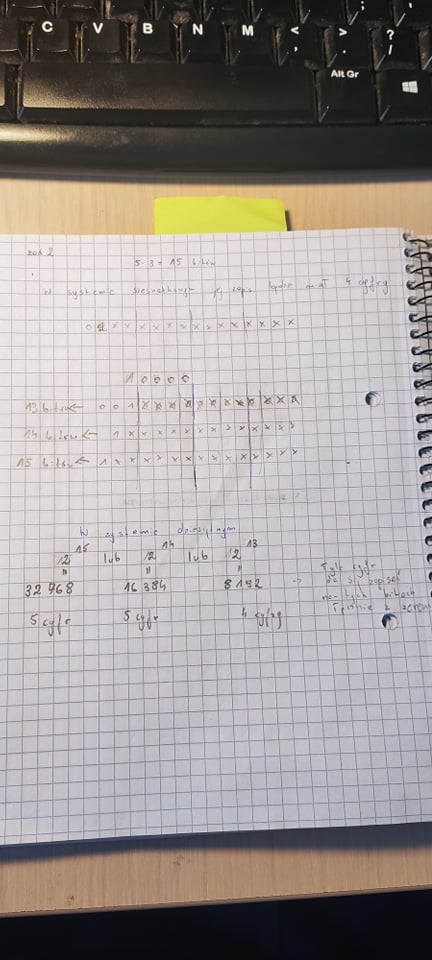 C V B N M < , > . ? /
Alt Gr
zad 2
5·3 = 15 bitów
W systemie szesnastkowym jej zapis będzie miał 4 cyfry
0 1 x x x x x x x x x x x x x x
1 0 0 0 0
13 bitów ← 0 0 1 x x x x x x x x x x x x
14 bitów ← 1 x x x x x x x x x x x x x
15 bitów ← 1 x x x x x x x x x x x x x x
W systemie dziesiętnym
2^15 lub 2^14 lub 2^13
= = =
32 768 16 384 8192 → Tyle cyfr
da się zapisać
na tych bitach
łącznie z zerem
5 cyfr 5 cyfr 4 cyfry